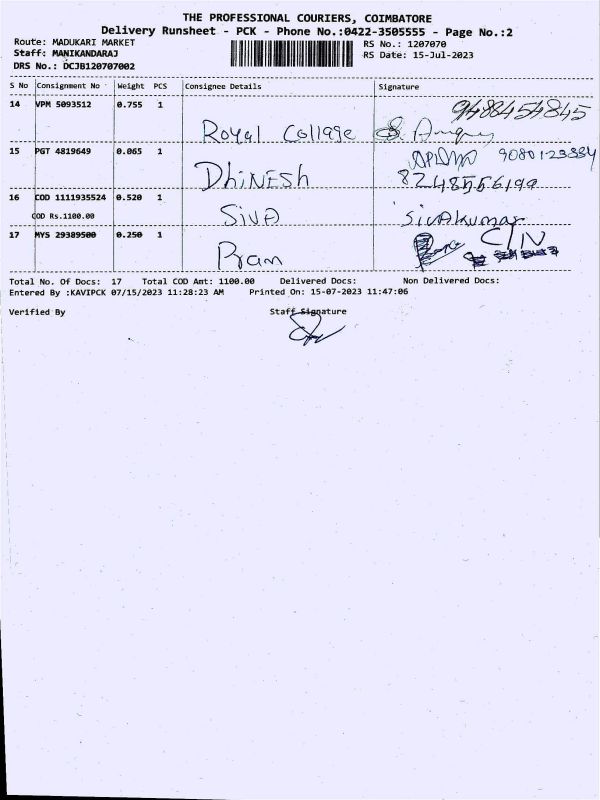 THE PROFESSIONAL COURIERS, COIMBATORE
Delivery Runsheet - PCK - Phone No.:0422-3505555 - Page No.:2
Route: MADUKARI MARKET
RS No.: 1207070
Staff: MANIKANDARAJ
RS Date: 15-Jul-2023
DRS No.: DCJB120707002
S No Consignment No Weight PCS Consignee Details Signature
14 VPM 5093512 0.755 1 Royal College 9488454845
15 PGT 4819649 0.065 1 DhiNESh 9080123334
8248556199
16 COD 1111935524 0.520 1 Siva Sivakumar
COD Rs.1100.00
17 MYS 29389500 0.250 1 Ram
Total No. Of Docs: 17 Total COD Amt: 1100.00 Delivered Docs: Non Delivered Docs:
Entered By :KAVIPCK 07/15/2023 11:28:23 AM Printed On: 15-07-2023 11:47:06
Verified By Staff Signature